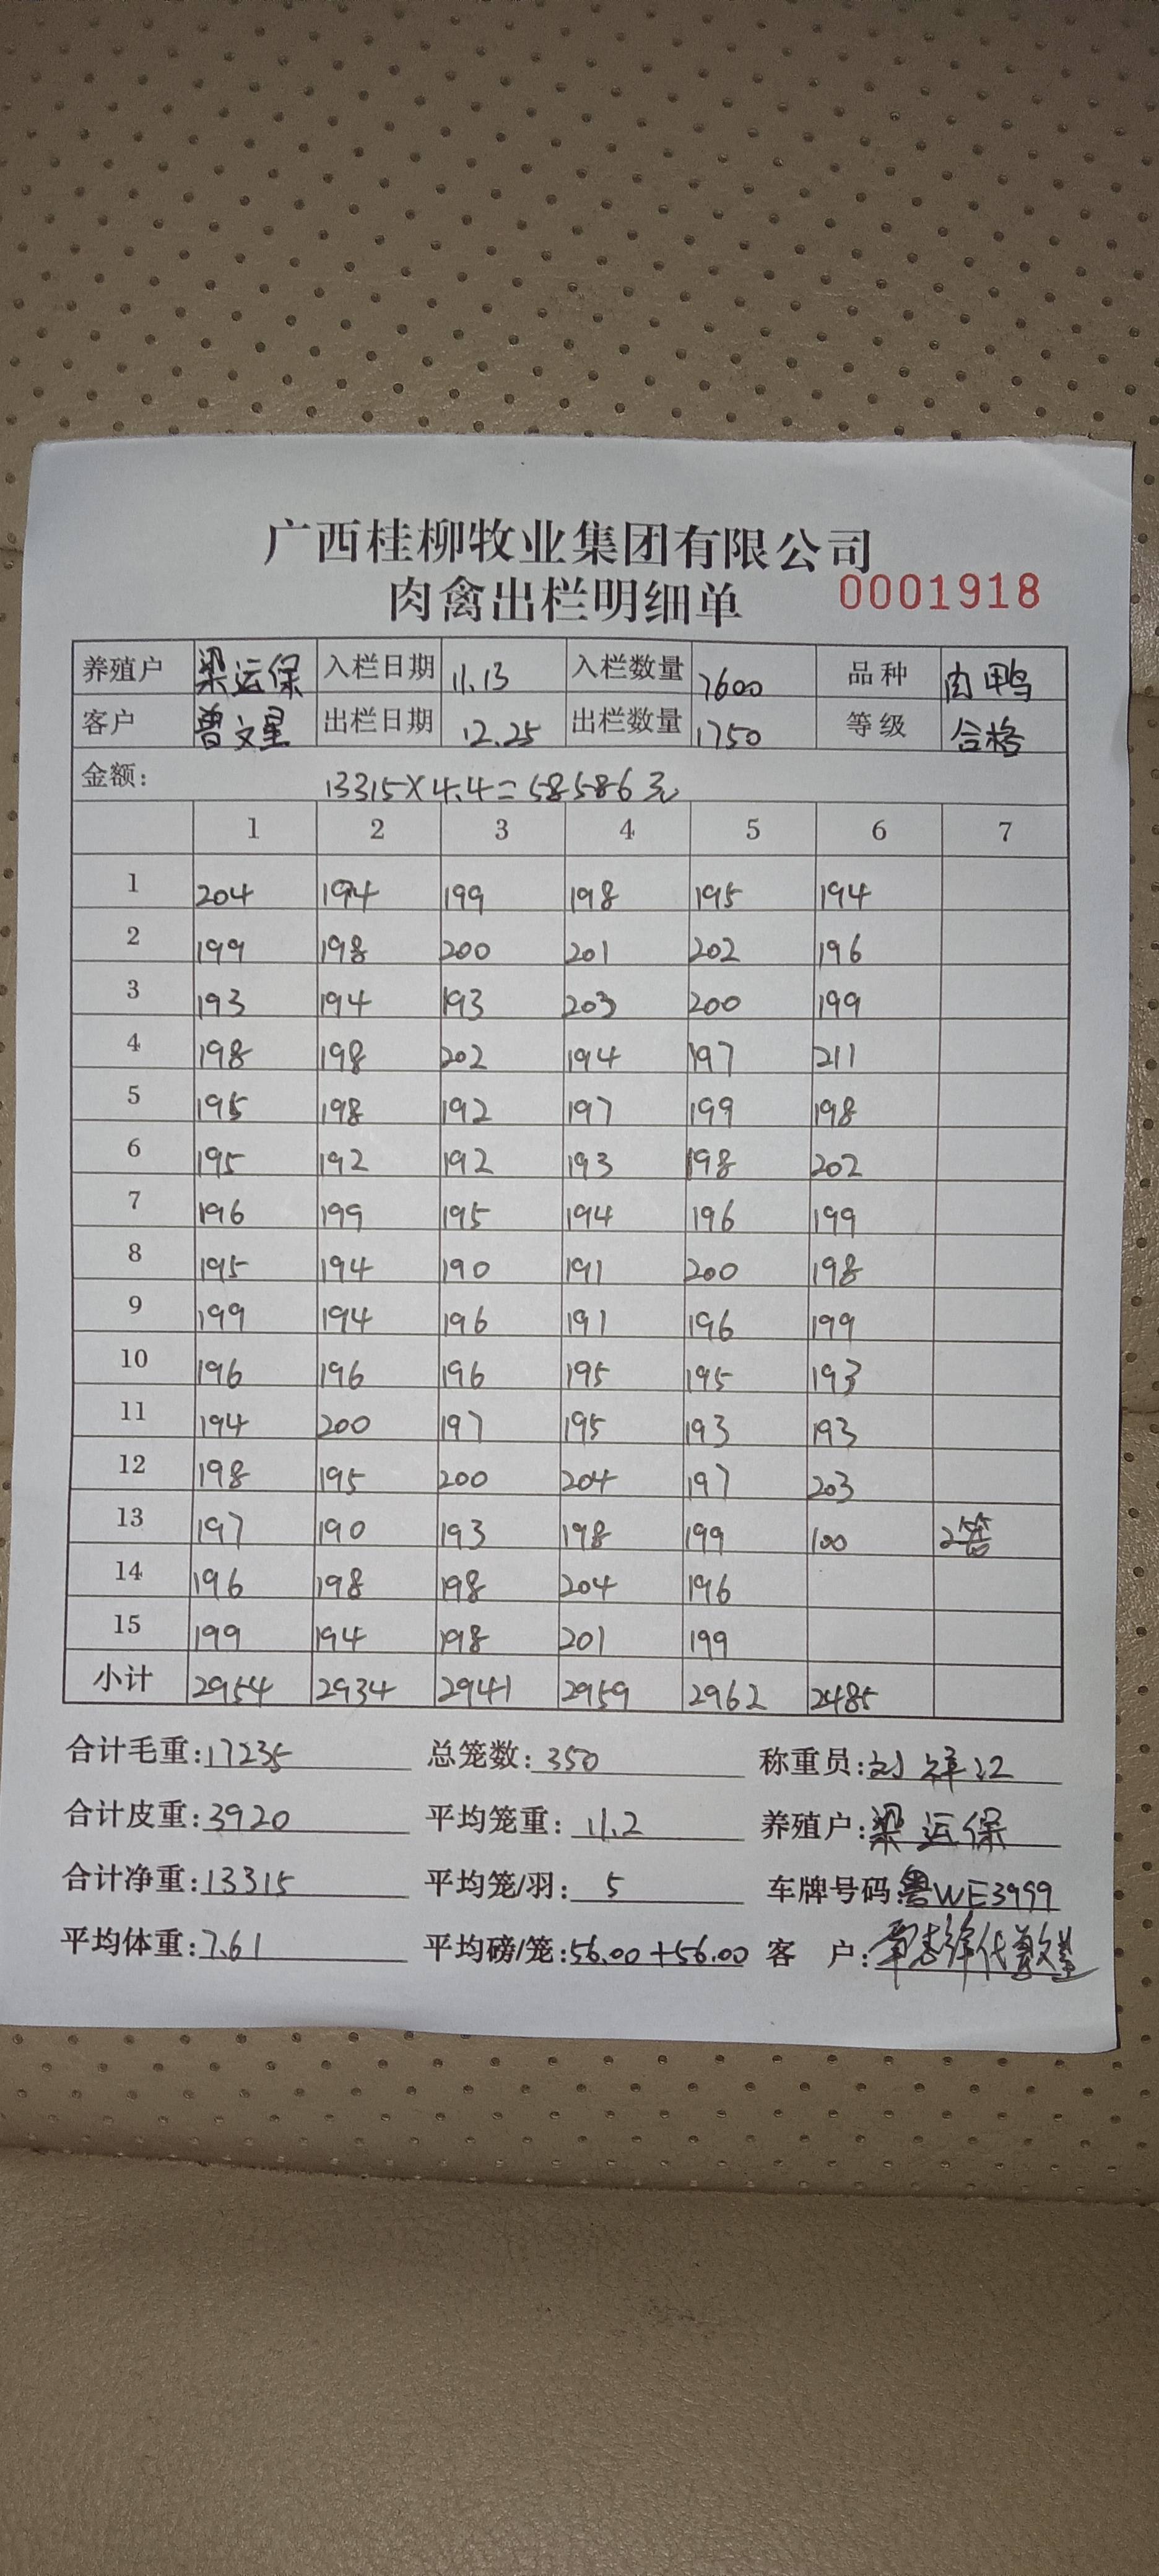 广西桂柳牧业集团有限公司
肉禽出栏明细单 0001918
养殖户 梁运保 入栏日期 11.13 入栏数量 7600 品种 肉鸭
客户 曾文星 出栏日期 12.25 出栏数量 1750 等级 合格
金额: 13315×4.4=58586元
1 2 3 4 5 6 7
1 204 194 199 198 195 194
2 199 198 200 201 202 196
3 193 194 193 203 200 199
4 198 198 202 194 197 211
5 195 198 192 197 199 198
6 195 192 192 193 198 202
7 196 199 195 194 196 199
8 195 194 190 191 200 198
9 199 194 196 191 196 199
10 196 196 196 195 195 193
11 194 200 197 195 193 193
12 198 195 200 204 197 203
13 197 190 193 198 199 100 2
14 196 198 198 204 196
15 199 194 198 201 199
小计 2954 2934 2941 2959 2962 2485
合计毛重:17235 总笼数:350 称重员:刘祥江
合计皮重:3920 平均笼重:11.2 养殖户:梁运保
合计净重:13315 平均笼/羽:5 车牌号码:粤WE3999
平均体重:7.61 平均磅/笼:56.00+56.00 客 户: